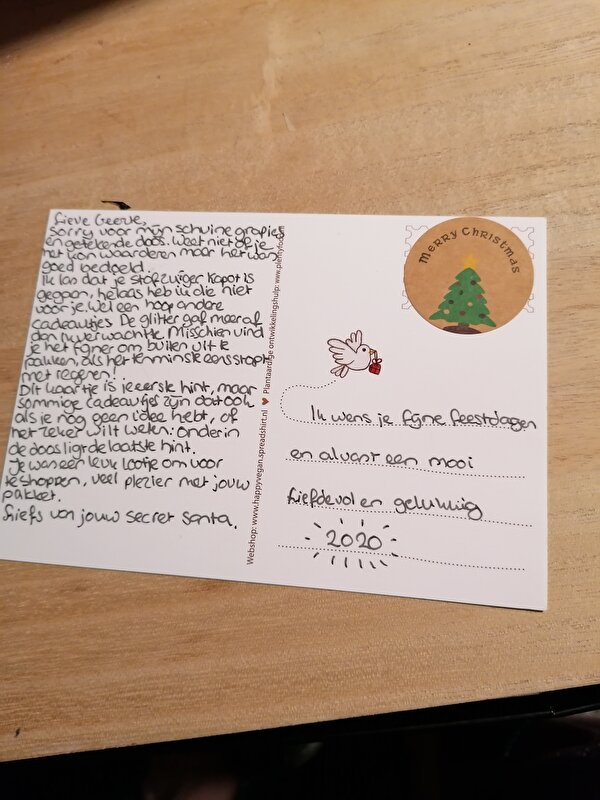 Lieve Geerte,
Sorry voor mijn schuine grapjes
en getekende doos. Weet niet of je
het kon waarderen maar het was
goed bedoeld.
Ik las dat je stofzuiger kapot is
gegaan, helaas heb ik die niet
voor je. Wel een hoop andere
cadeautjes. De glitter gaf meer af
dan ik verwachtte. Misschien vind
je het fijner om buiten uit te
pakken, als het tenminste eens stopt
met regenen!
Dit kaartje is je eerste hint, maar
sommige cadeautjes zijn dat ook
als je nog geen idee hebt, of
het zeker wilt weten: onderin
de doos ligt de laatste hint.
Je was een leuk lootje om voor
te shoppen, veel plezier met jouw
pakket.
Liefs van jouw secret santa.
Webshop: www.happyvegan.spreadshirt.nl ♥ Plantaardige ontwikkelingshulp: www.plentyfood
Merry Christmas
Ik wens je fijne feestdagen
en alvast een mooi
liefdevol en gelukkig
2020